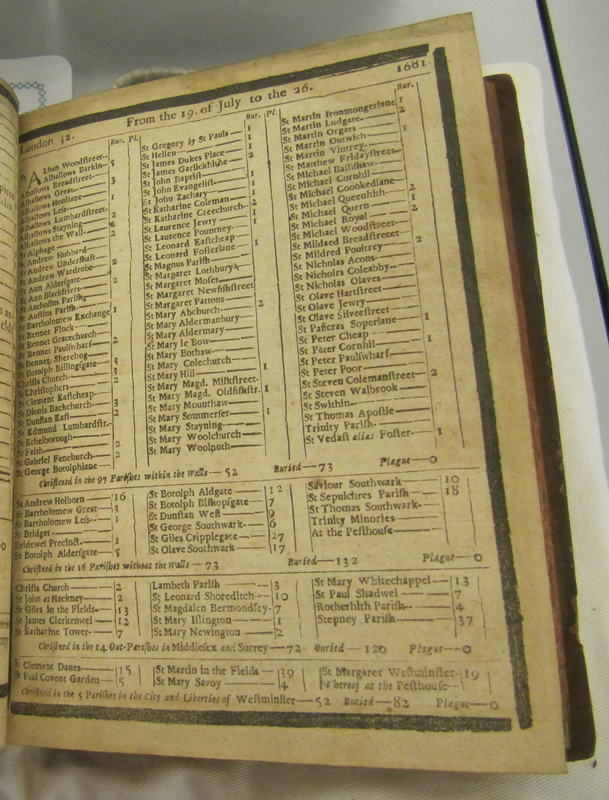 London 32. From the 19. of July to the 26. 1681
Bur. Pl.
St Alban Woodſtreet—
Alhallows Barkin— 5
Alhallows Breadſtreet—
Alhallows Great— 3
Alhallows Honilane—
Alhallows Leſs— 1
Alhallows Lumbardſtreet—
Alhallows Stayning— 2
Alhallows the Wall—
St Alphage
St Andrew Hubbard—
St Andrew Underſhaft—
St Andrew Wardrobe— 2
St Ann Alderſgate—
St Ann Blackfriers—
St Antholins Pariſh—
St Auſtins Pariſh—
St Bartholomew Exchange 1
St Bennet Finck—
St Bennet Gracechurch—
St Bennet Paulſwharf— 2
St Bennet Sherehog—
St Botolph Billingſgate— 3
Chriſts Church— 3
St Chriſtophers— 2
St Clement Eaſtcheap—
St Dionis Backchurch— 3
St Dunſtan Eaſt— 2
St Edmund Lumbardſtr.—
St Ethelborough—
St Faith—
St Gabriel Fenchurch— 2
St George Botolphlane— 2
Bur. Pl.
St Gregory by St Pauls— 1
St Hellen— 1
St James Dukes Place— 1
St James Garlickhithe— 2
St John Baptiſt—
St John Evangeliſt— 1
St John Zachary— 1
St Katharine Coleman— 1
St Katharine Creechurch— 2
St Laurence Jewry— 1
St Laurence Pountney—
St Leonard Eaſtcheap—
St Leonard Foſterlane— 1
St Magnus Pariſh—
St Margaret Lothbury
St Margaret Moſes—
St Margaret Newfiſhſtreet
St Margaret Pattons—
St Mary Abchurch— 2
St Mary Aldermanbury
St Mary Aldermary—
St Mary le Bow—
St Mary Bothaw—
St Mary Colechurch—
St Mary Hill— 1
St Mary Magd. Milkſtreet-
St Mary Magd. Oldfiſhſtr. 1
St Mary Mounthaw—
St Mary Sommerſet— 1
St Mary Stayning—
St Mary Woolchurch—
St Mary Woolnoth—
Bur.
St Martin Ironmongerlane 1
St Martin Ludgate— 2
St Martin Orgars— 1
St Martin Outwich—
St Martin Vintrey—
St Matthew Fridayſtreet—
St Michael Baſſiſhaw—
St Michael Cornhil—
St Michael Crookedlane—
St Michael Queenhith— 2
St Michael Quern— 1
St Michael Royal— 2
St Michael Woodſtreet—
St Mildred Breadſtreet—
St Mildred Poultrey— 2
St Nicholas Acons—
St Nicholas Coleabby—
St Nicholas Olaves—
St Olave Hartſtreet—
St Olave Jewry—
St Olave Silverſtreet—
St Pancras Soperlane— 1
St Peter Cheap—
St Peter Cornhil— 1
St Peter Paulſwharf—
St Peter Poor—
St Steven Colemanſtreet— 2
St Steven Walbrook—
St Swithin—
St Thomas Apoſtle—
Trinity Pariſh—
St Vedaſt alias Foſter— 1
Chriſtned in the 97 Pariſhes within the Walls—52 Buried—73 Plague—0
St Andrew Holborn— 16
St Bartholomew Great— 3
St Bartholomew Leſs— 1
St Bridget—
Bridewel Precinct— 1
St Botolph Alderſgate— 5
St Botolph Aldgate— 12
St Botolph Biſhopſgate— 7
St Dunſtan Weſt— 9
St George Southwark— 6
St Giles Cripplegate— 27
St Olave Southwark— 17
Saviour Southwark— 10
St Sepulchres Pariſh— 18
St Thomas Southwark—
Trinity Minories—
At the Peſthouſe—
Chriſtned in the 16 Pariſhes without the Walls—73 Buried—132 Plague—0
Chriſts Church— 2
St John at Hackney— 2
St Giles in the Fields— 13
St James Clerkenwel— 12
St Katharine Tower— 7
Lambeth Pariſh— 3
St Leonard Shoreditch— 10
St Magdalen Bermondſey— 7
St Mary Iſlington— 1
St Mary Newington— 2
St Mary Whitechappel— 13
St Paul Shadwel— 7
Rotherhith Pariſh— 4
Stepney Pariſh— 37
Chriſtned in the 14 Out-Pariſhes in Middleſex and Surrey—72 Buried—120 Plague—0
St Clement Danes— 15
St Paul Covent Garden— 5
St Martin in the Fields— 39
St Mary Savoy— 4
St Margaret Weſtminſter— 19
Whereof at the Peſthouſe—
Chriſtned in the 5 Pariſhes in the City and Liberties of Weſtminſter—52 Buried—82 Plague—0